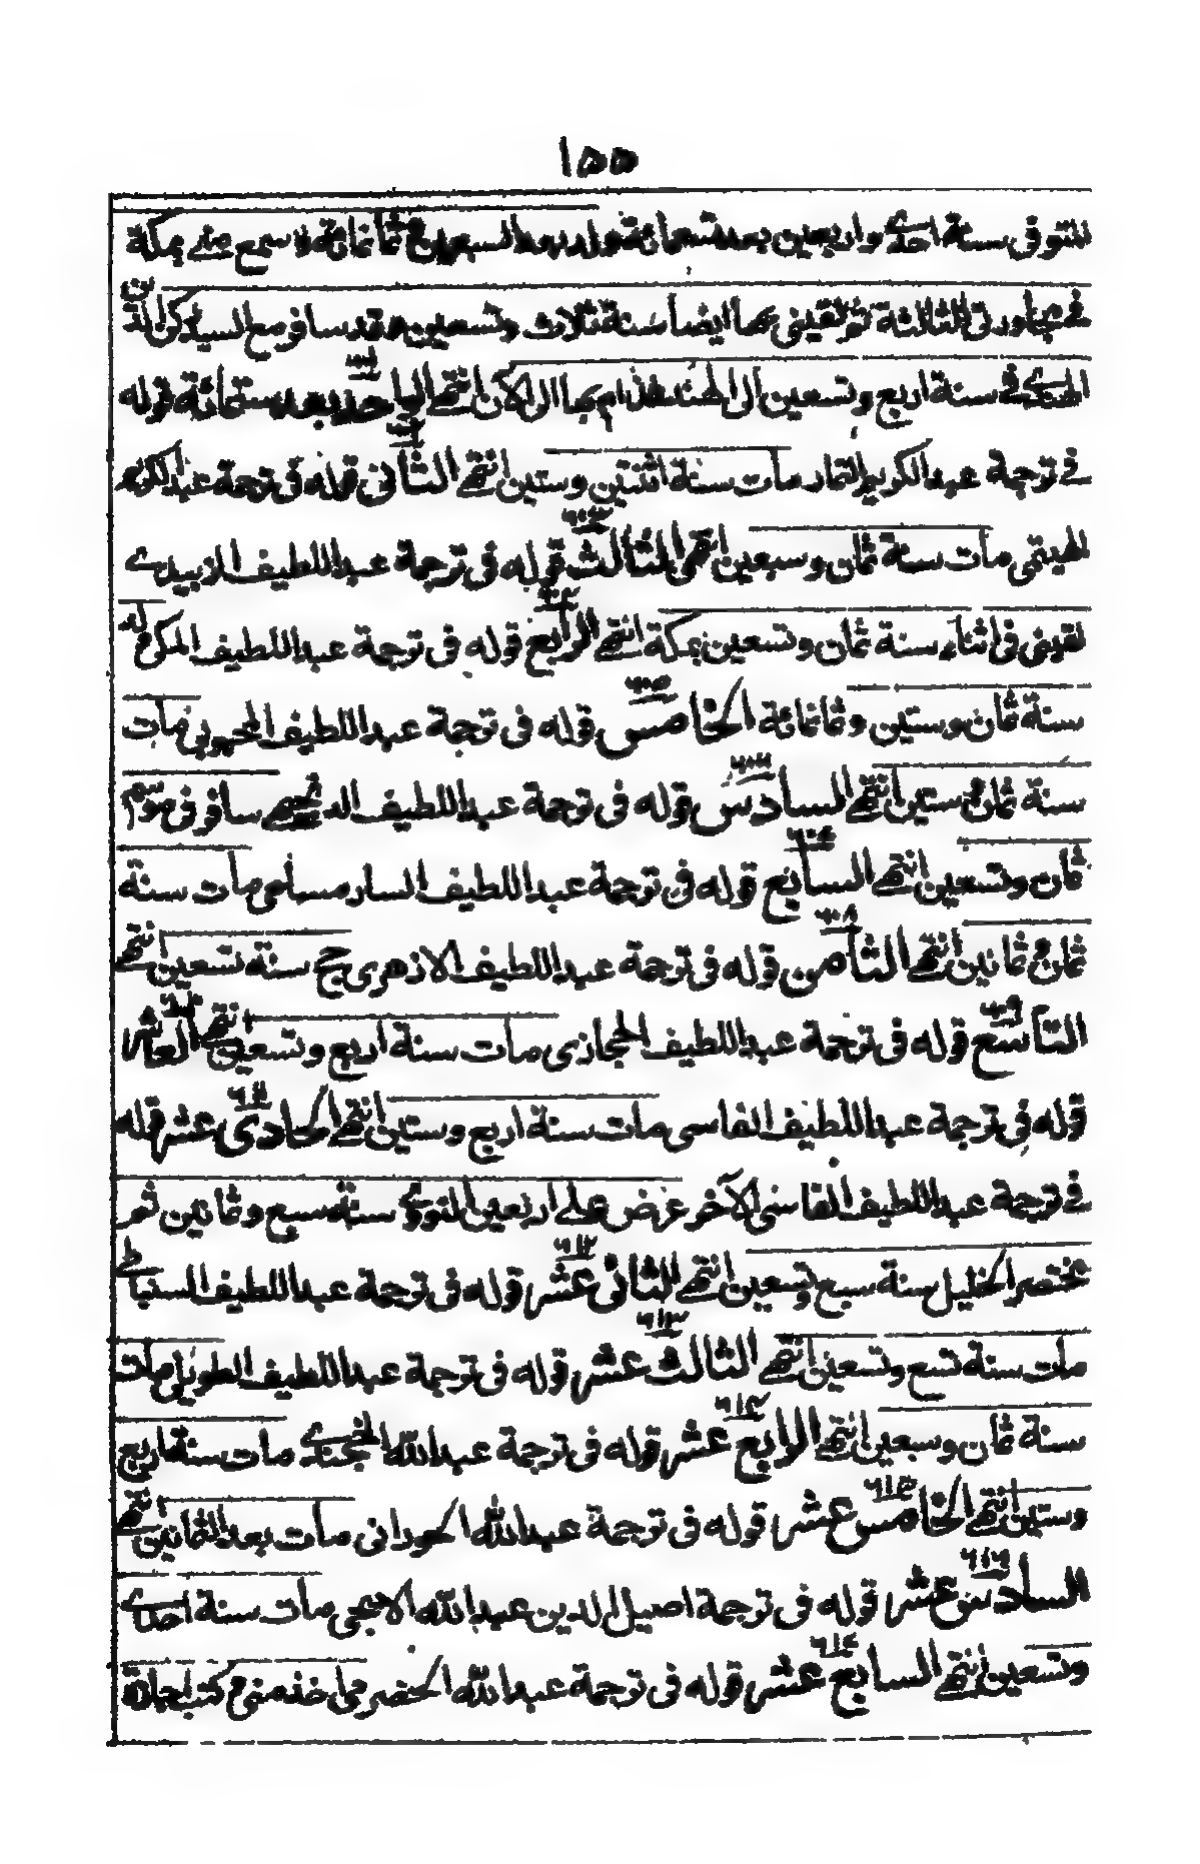 ١٥٥
المتوفى سنة احدى واربعين بعد تسعمائة ولد بعد السبعين وثمانمائة وسمع مني بمكة
في مجاورتي الثالثة ثم لقيني بها ايضا سنة ثلاث وتسعين وقد سافر مع السيد
في سنة اربع وتسعين الى الهند الى الآن انتهى الواحد بعد ستمائة قوله
في ترجمة عبد الكريم مات سنة اثنتين وستين انتهى الثاني قوله في ترجمة عبد الكريم
الهيتمي مات سنة ثمان وسبعين انتهى الثالث قوله في ترجمة عبد اللطيف الزبيدى
لقيني في اثناء سنة ثمان وتسعين بمكة انتهى الرابع قوله في ترجمة عبد اللطيف المكي ولد
سنة ثمان وستين وثمانمائة الخامس قوله في ترجمة عبد اللطيف مات
سنة ثمان وستين انتهى السادس قوله في ترجمة عبد اللطيف سافر في موسم
ثمان وتسعين انتهى السابع قوله في ترجمة عبد اللطيف السارمساحي مات سنة
ثمان وثمانين انتهى الثامن قوله في ترجمة عبد اللطيف الازهرى حج سنة تسعين انتهى
التاسع قوله في ترجمة عبد اللطيف الحجازى مات سنة اربع وتسعين انتهى العاشر
قوله في ترجمة عبد اللطيف الفاسي مات سنة اربع وستين انتهى الحادى عشر قوله
في ترجمة عبد اللطيف الفاسي الآخر عرض على اربعين النووى سنة سبع وثمانين ثم
مختصر الخليل سنة سبع وتسعين انتهى الثاني عشر قوله في ترجمة عبد اللطيف السنباطي
مات سنة تسع وتسعين انتهى الثالث عشر قوله في ترجمة عبد اللطيف الطويل مات
سنة ثمان وسبعين انتهى الرابع عشر قوله في ترجمة عبد الله الخجندى مات سنة اربع
وستين انتهى الخامس عشر قوله في ترجمة عبد الله الحورانى مات بعد الثمانين انتهى
السادس عشر قوله في ترجمة اصيل الدين عبد الله الايجي مات سنة احدى
وتسعين انتهى السابع عشر قوله في ترجمة عبد الله الحضرمي اخذ مني وكتب اجازة